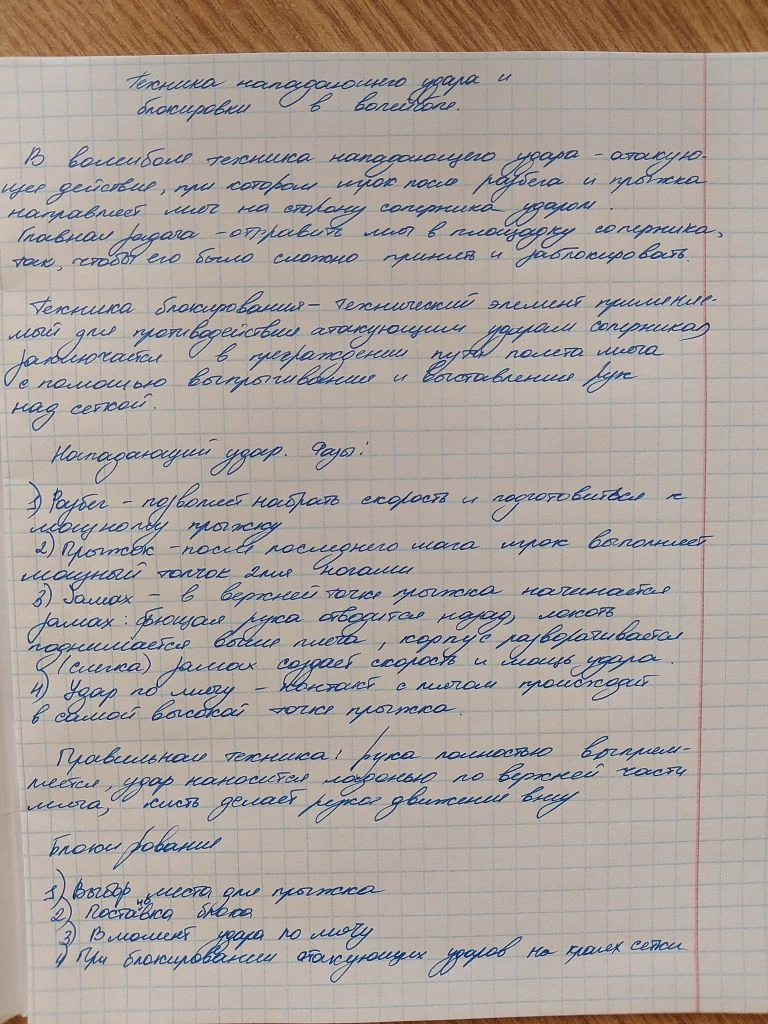 Техника нападающего удара и
блокировки в волейболе.
В волейболе техника нападающего удара - атакую-
щее действие, при котором игрок после разбега и прыжка
направляет мяч на сторону соперника ударом.
Главная задача - отправить мяч в площадку соперника,
так, чтобы его было сложно принять и заблокировать.
Техника блокирования - технический элемент применяе-
мый для противодействия атакующим ударам соперника,
заключается в преграждении пути полета мяча
с помощью выпрыгивания и выставления рук
над сеткой.
Нападающий удар. Фазы:
1) Разбег - позволяет набрать скорость и подготовиться к
мощному прыжку
2) Прыжок - после последнего шага игрок выполняет
мощный толчок двумя ногами
3) Замах - в верхней точке прыжка начинается
замах: бьющая рука отводится назад, локоть
поднимается выше плеча, корпус разворачивается
(слегка) замах создает скорость и мощь удара.
4) Удар по мячу - контакт с мячом происходит
в самой высокой точке прыжка.
Правильная техника: рука полностью выпрям-
ляется, удар наносится ладонью по верхней части
мяча, кисть делает резкое движение вниз
Блокирование
1) Выбор места для прыжка
2) Постановка блока
3) В момент удара по мячу
4 При блокировании атакующих ударов на краях сетки